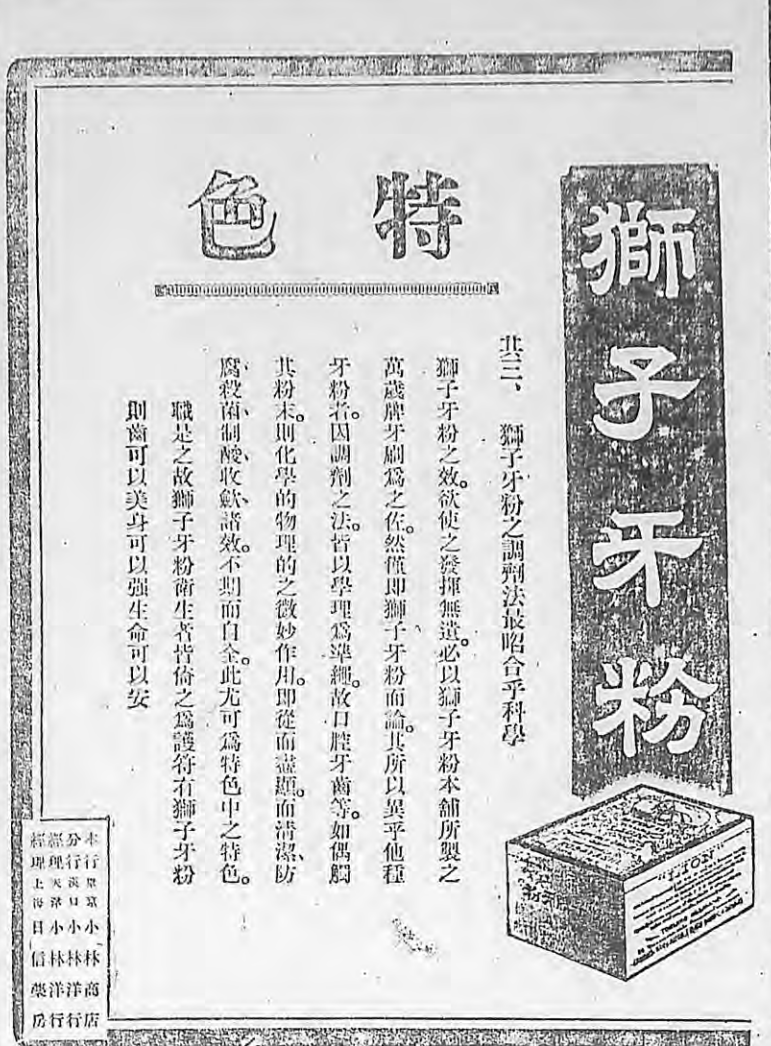 獅子牙粉
特色
其三、獅子牙粉之調劑法最昭合乎科學
獅子牙粉之效。欲使之發揮無遺。必以獅子牙粉本舖所製之
萬歲牌牙刷爲之佐。然僅即獅子牙粉而論。其所以異乎他種
牙粉者。因調劑之法。皆以學理爲準繩。故口腔牙齒等。如偶觸
其粉末。則化學的物理的之微妙作用。即從而盡顯。而淸潔、防
腐、殺菌、制酸、收歛、諸效。不期而自全。此尤可爲特色中之特色。
職是之故獅子牙粉衞生者皆倚之爲護符有獅子牙粉
則齒可以美身可以强生命可以安
本行東京小林商店
分行漢口小林洋行
經理天津小林洋行
經理上海日信藥房
"LION"